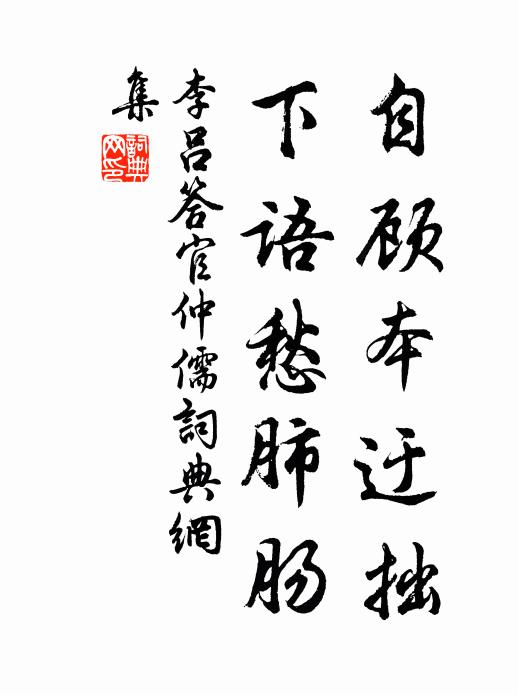 自顾本迂拙
下语愁肺肠
李吕答官仲儒詞典網
集
詞典
网印